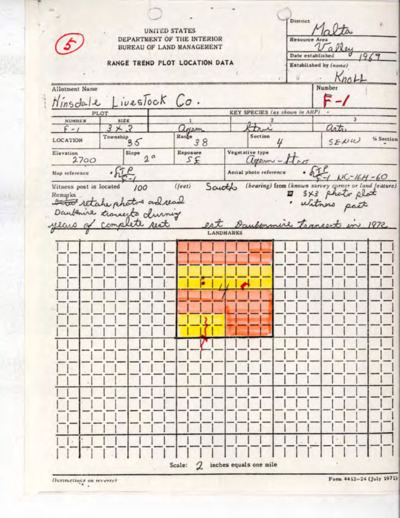 5
UNITED STATES
DEPARTMENT OF THE INTERIOR
BUREAU OF LAND MANAGEMENT
RANGE TREND PLOT LOCATION DATA
District
Malta
Resource Area
Valley
Date established 1969
Established by (name)
Knoll
Allotment Name
Hinsdale Livestock Co.
Number
F-1
PLOT
KEY SPECIES (as shown in AMP)
NUMBER SIZE 1 2 3
F-1 3x3 Agsm Stvi
LOCATION
Township
35
Range
38
Section
4
SENW ¼ Section
Elevation
2700
Slope
2°
Exposure
SE
Vegetative type
Agsm-
Map reference
F-1
Aerial photo reference
F-1 NC-16H-60
Witness post is located 100 (feet) South (bearing) from (known survey corner or land feature)
Remarks
retake photos and read
3x3 photo plot
• Witness post
Daubenmire transects during
years of complete rest
est Daubenmire transect in 1972
LANDMARKS
4
Scale: 2 inches equals one mile
(Instructions on reverse)
Form 4412-24 (July 1971)